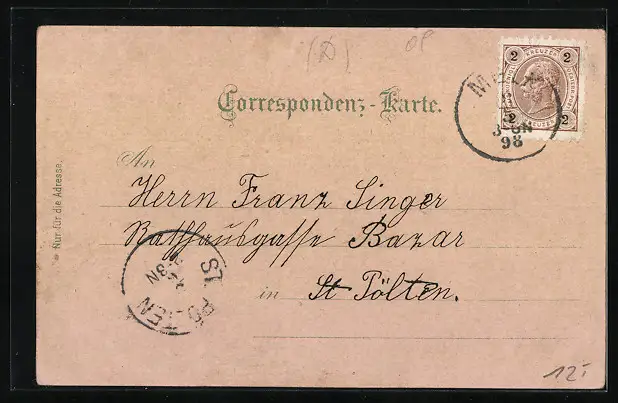 (D)
2 KREUZER 2
2 KREUZER 2
Correspondenz-Karte.
MELK
98
An
Herrn Franz Singer
Rathhausgasse Bazar
in St Pölten.
ST. PÖLTEN
Nur für die Adresse.
12.-